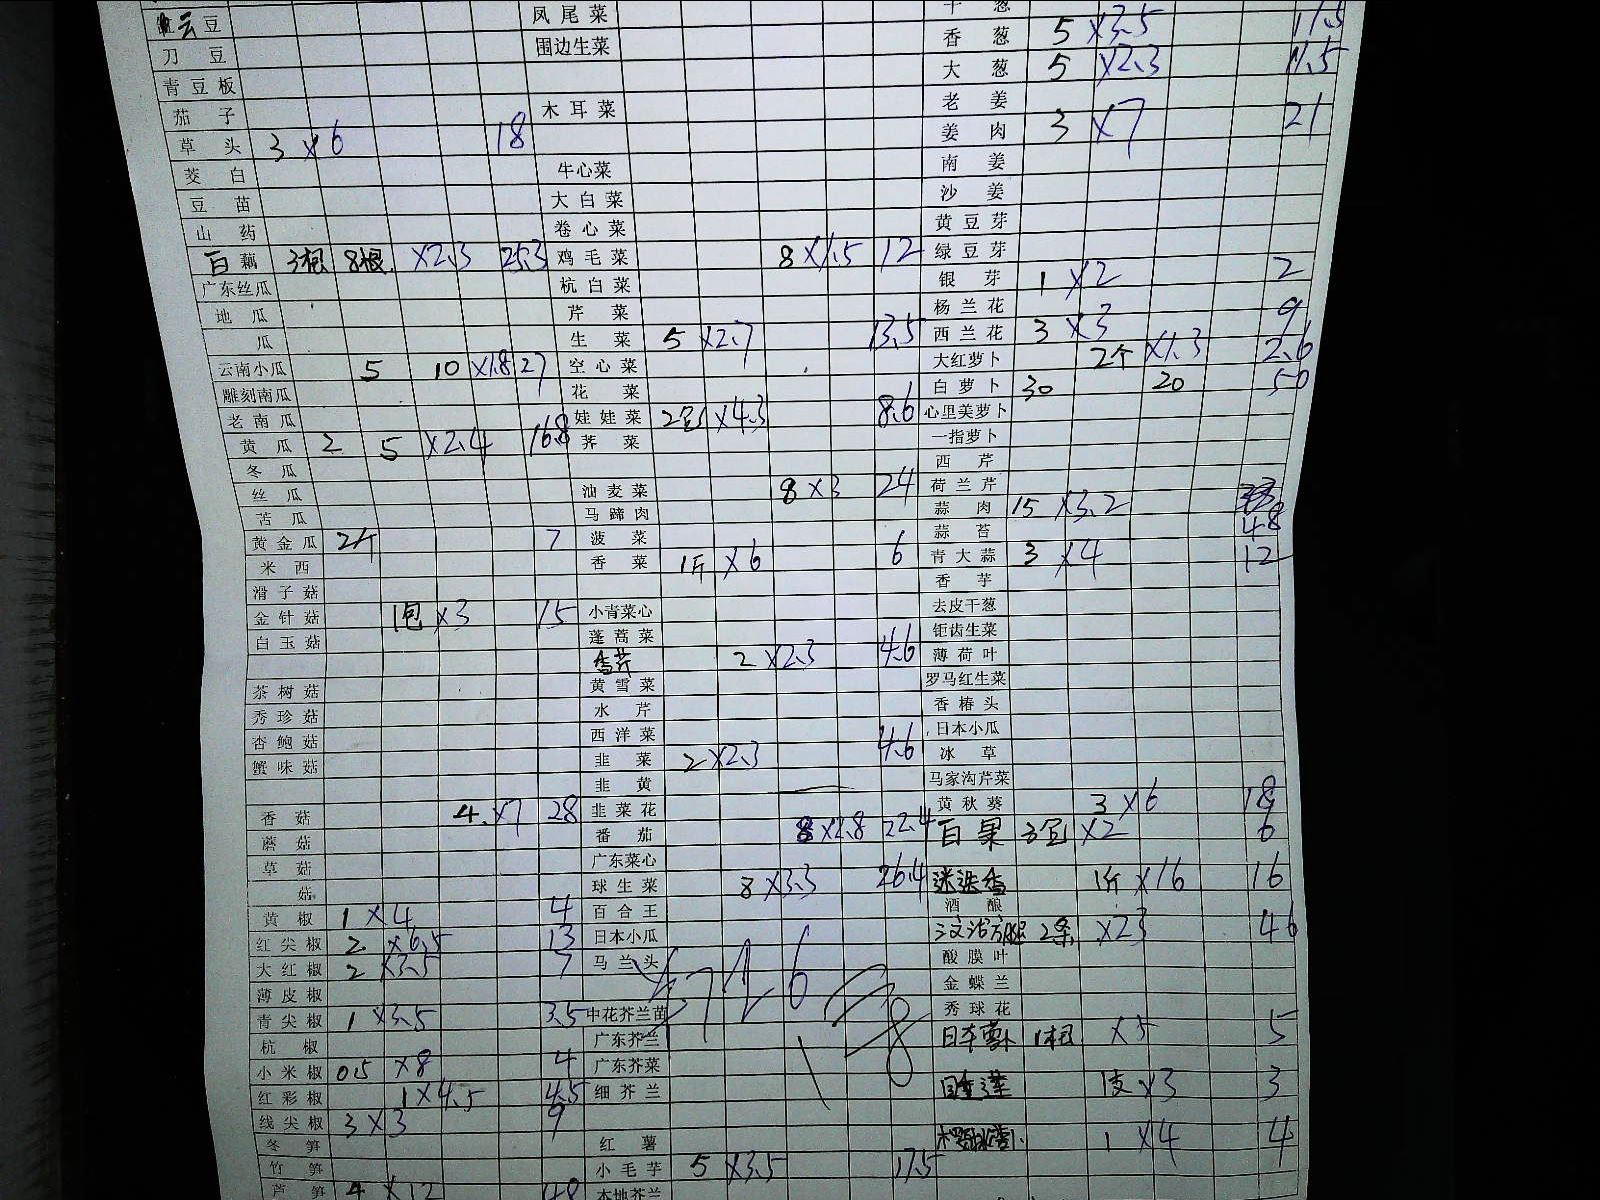 豆
刀豆
青豆板
茄子
草头 3 ×6 18
茭白
豆苗
山药
白藕 3根 8根 ×2.3 25.3
广东丝瓜
地瓜
瓜
云南小瓜 5 10 ×1.8 27
雕刻南瓜
老南瓜
黄瓜 2 5 ×2.4 16.8
冬瓜
丝瓜
苦瓜
黄金瓜 2个 7
米西
滑子菇
金针菇 1包 ×3 15
白玉菇
茶树菇
秀珍菇
杏鲍菇
蟹味菇
香菇 4 ×7 28
蘑菇
草菇
菇
黄椒 1 ×4 4
红尖椒 2 ×6.5 13
大红椒 2 ×3.5 7
薄皮椒
青尖椒 1 ×3.5 3.5
杭椒
小米椒 0.5 ×8 4
红彩椒 1 ×4.5 4.5
线尖椒 3 ×3 9
冬笋
竹笋
芦笋 4 ×12 48
凤尾菜
围边生菜
木耳菜
牛心菜
大白菜
卷心菜
鸡毛菜 8 ×1.5 12
杭白菜
芹菜
生菜 5 ×2.7 13.5
空心菜
花菜
娃娃菜 2包 ×4.3 8.6
荠菜
油麦菜 8 ×3 24
马蹄肉
菠菜
香菜 1斤 ×6 6
小青菜心
蓬蒿菜
香芹 2 ×2.3 4.6
黄雪菜
水芹
西洋菜
韭菜 2 ×2.3 4.6
韭黄
韭菜花
番茄 8 ×2.8 22.4
广东菜心
球生菜 8 ×3.3 26.4
百合王
日本小瓜
马兰头
中花芥兰苗
广东芥兰
广东芥菜
细芥兰
红薯
小毛芋 5 ×3.5 17.5
本地芥兰
干葱
香葱 5 ×3.5 17.5
大葱 5 ×2.3 11.5
老姜
姜肉 3 ×7 21
南姜
沙姜
黄豆芽
绿豆芽
银芽 1 ×2 2
杨兰花
西兰花 3 ×3 9
大红萝卜 2个 ×1.3 2.6
白萝卜 30 20 50
心里美萝卜
一指萝卜
西芹
荷兰芹
蒜肉 15 ×3.2 48
蒜苔
青大蒜 3 ×4 12
香芋
去皮干葱
钜齿生菜
薄荷叶
罗马红生菜
香椿头
日本小瓜
冰草
马家沟芹菜
黄秋葵 3 ×6 18
白果 3包 ×2 6
迷迭香 1斤 ×16 16
酒酿
2条 ×23 46
酸膜叶
金蝶兰
秀球花
日本萝卜 1根 ×5 5
睡莲 1支 ×3 3
1 ×4 4